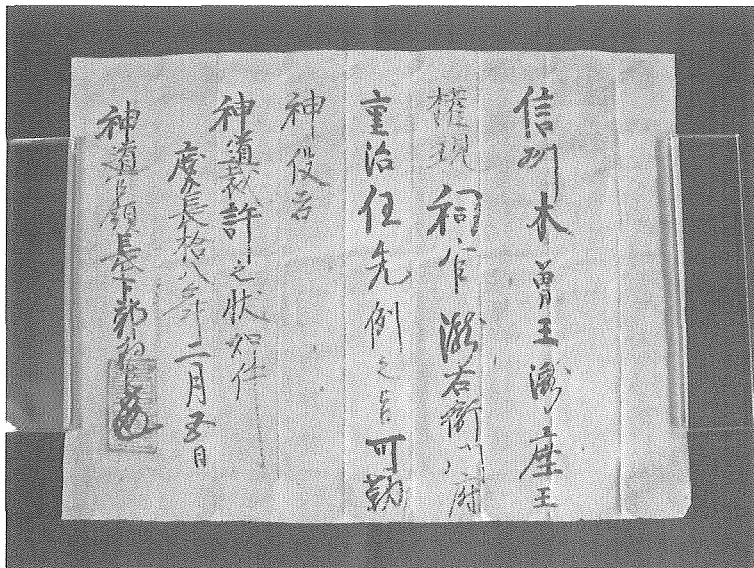 信州木曽王瀧座王
権現祠官瀧右衛門尉
重治任先例之旨可勤
神役者
神道裁許之状如件
慶長拾八年二月五日
神道管領長上卜部